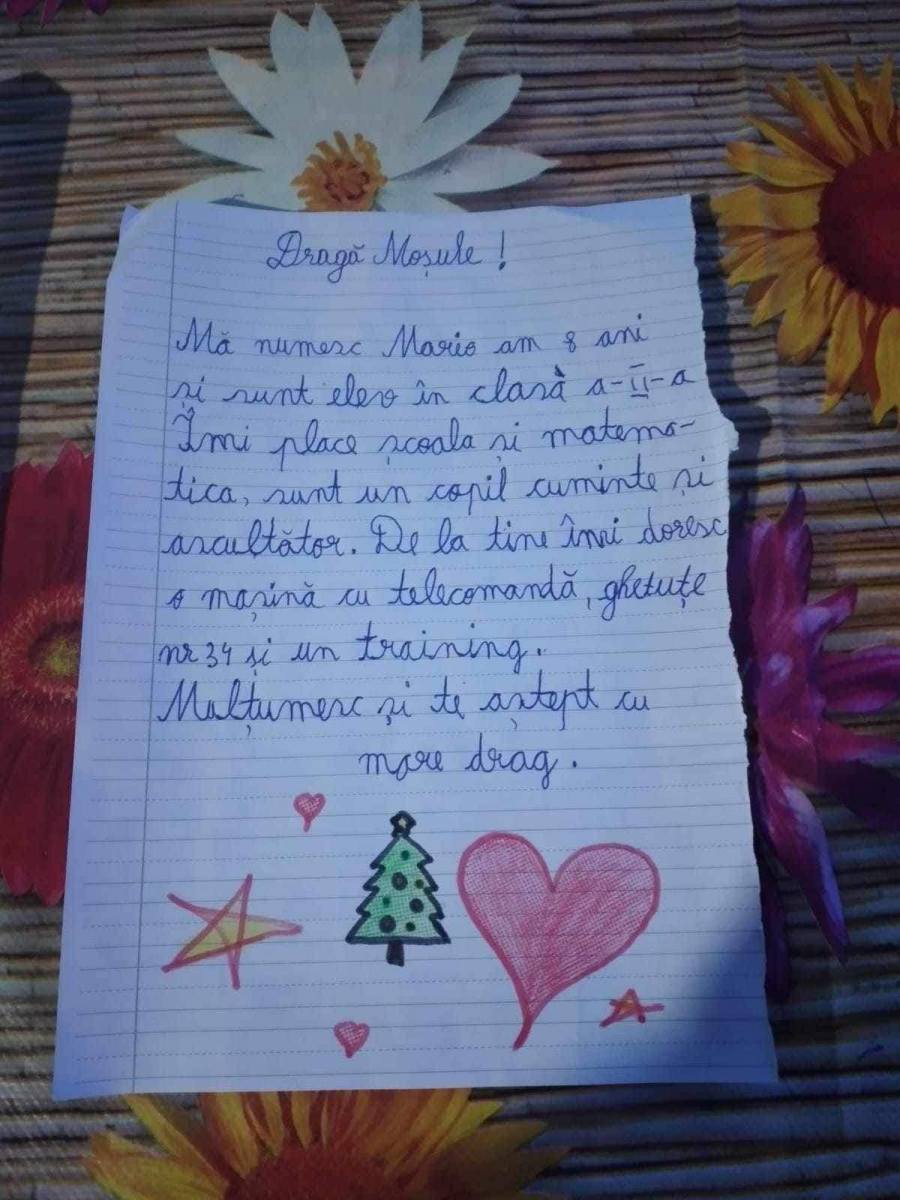 Dragă Moșule !
Mă numesc Mario am 8 ani
și sunt elev în clasă a-II-a
Îmi place școala și matema-
tica, sunt un copil cuminte și
ascultător. De la tine îmi doresc
o mașină cu telecomandă, ghetuțe
nr 34 și un training.
Malțumesc și te aștept cu
mare drag.